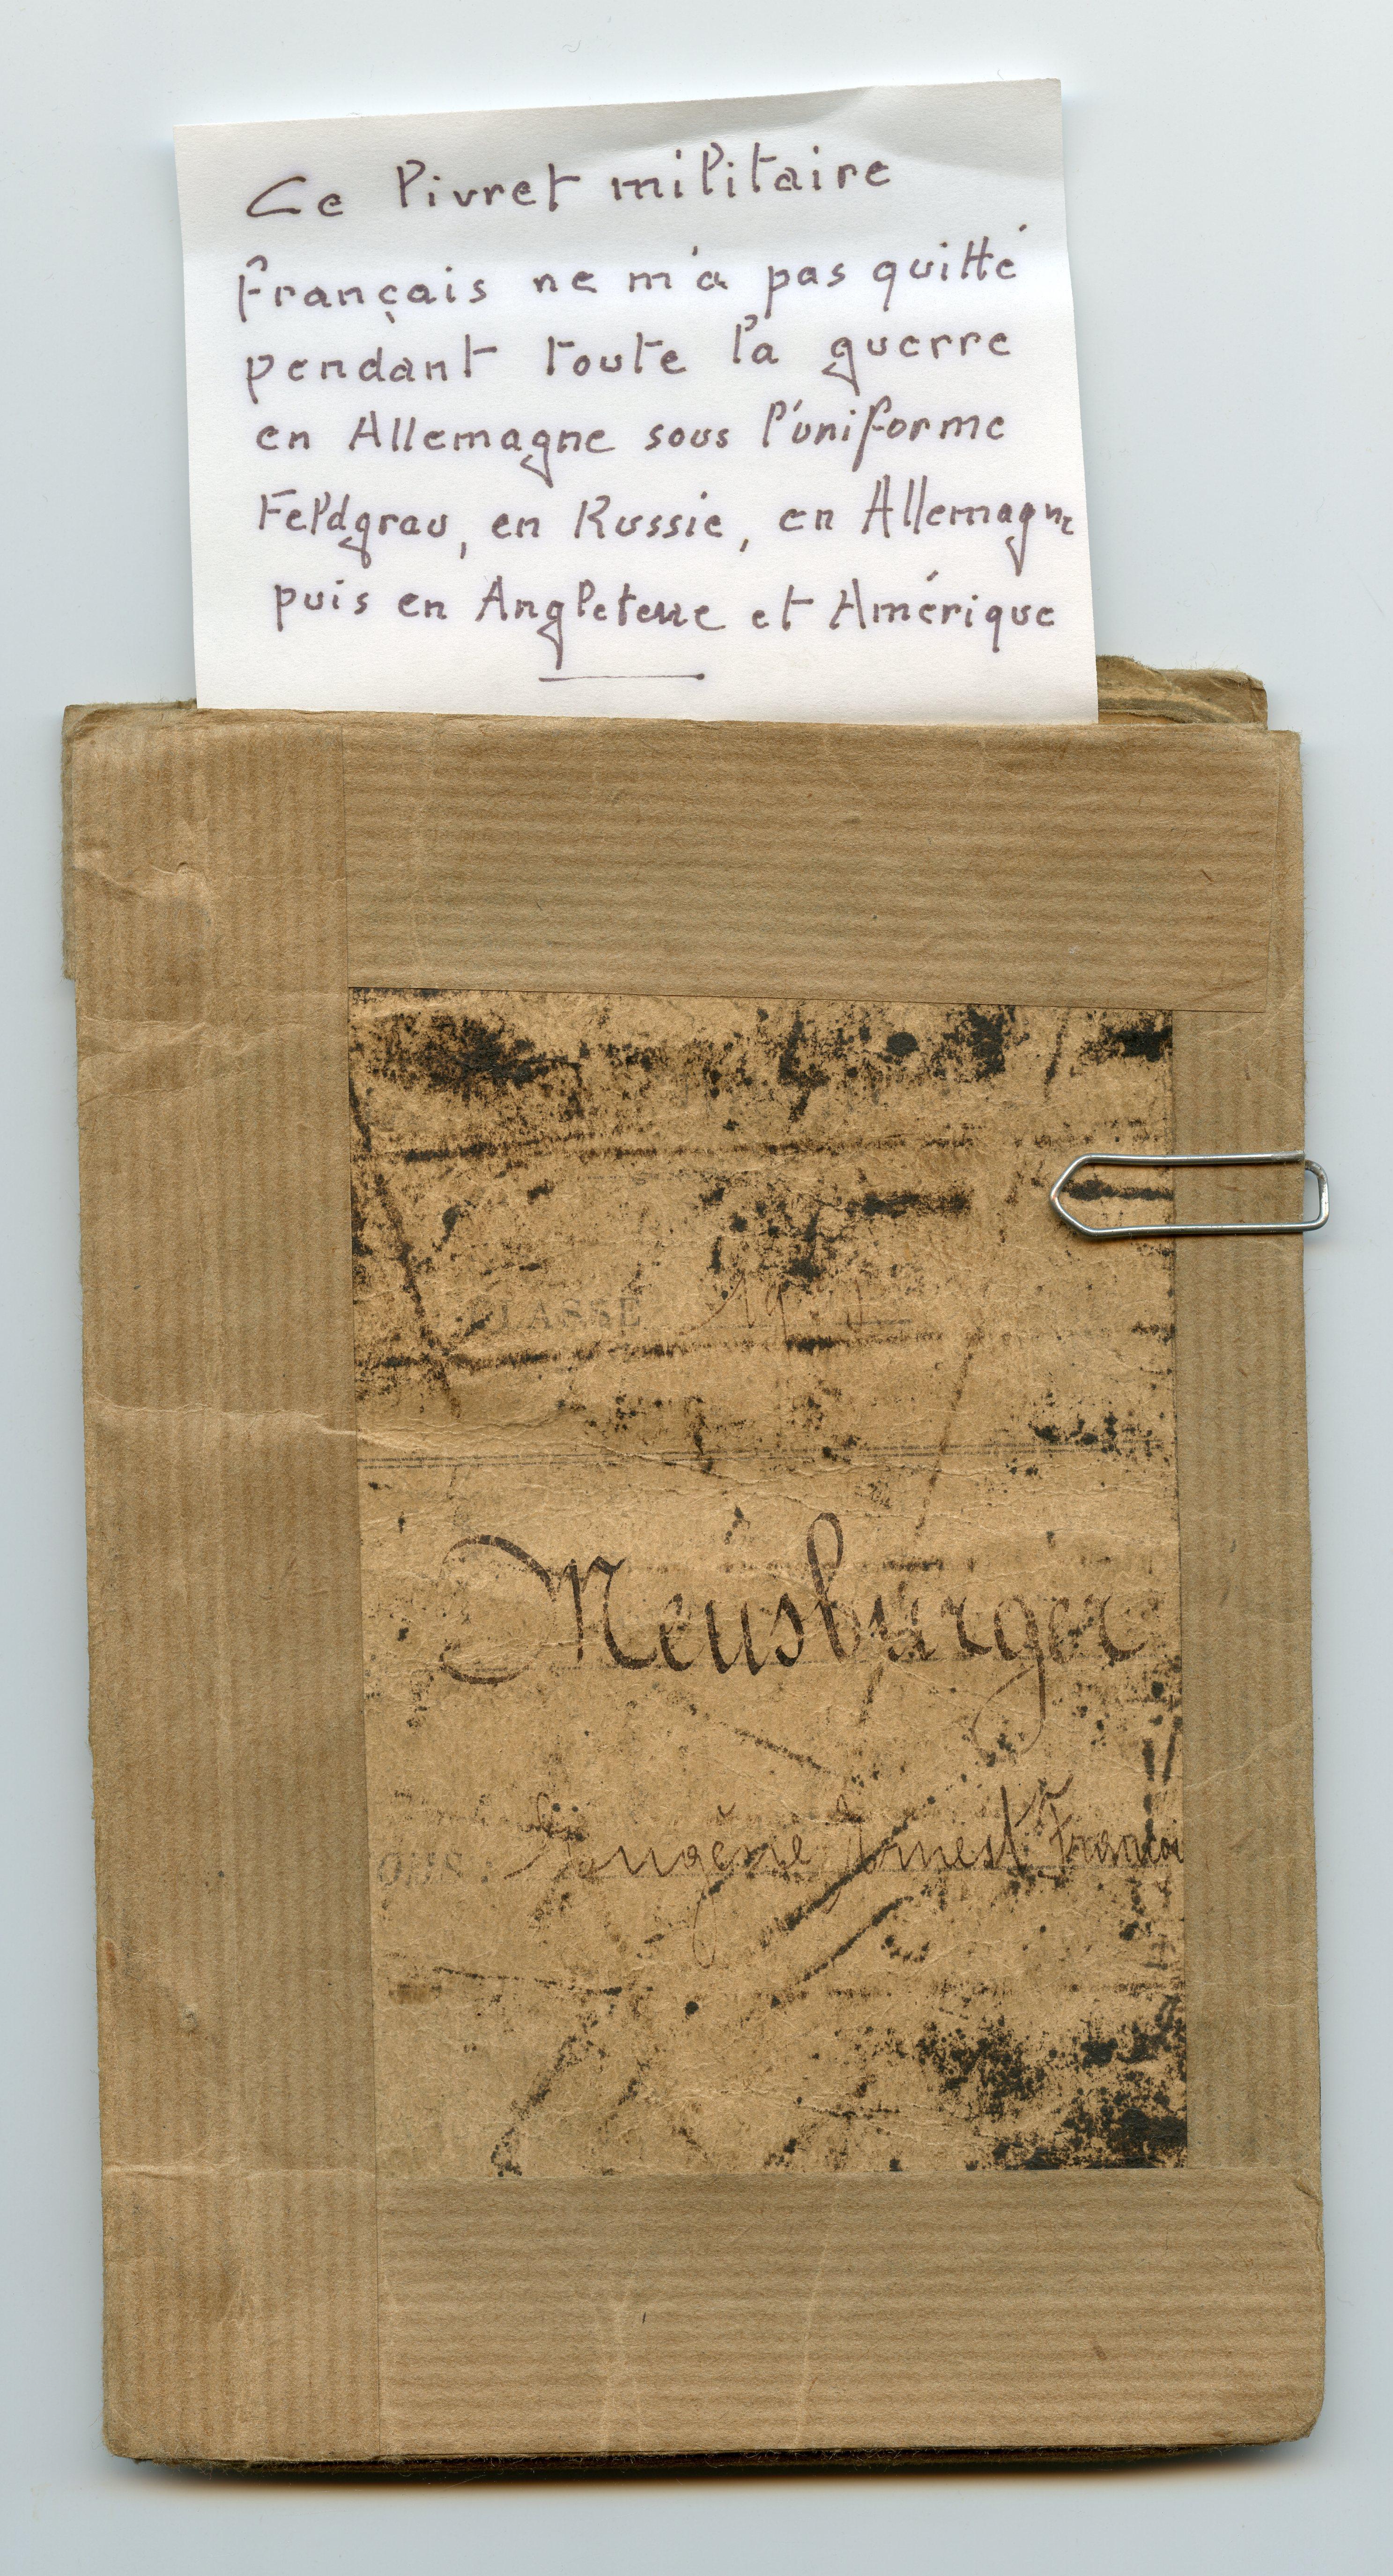 Ce livret militaire
français ne m'a pas quitté
pendant toute la guerre
en Allemagne sous l'uniforme
Feldgrau, en Russie, en Allemagne
puis en Angleterre et Amérique
CLASSE 19
Meusburger
oms: Eugène Ernest Françoi